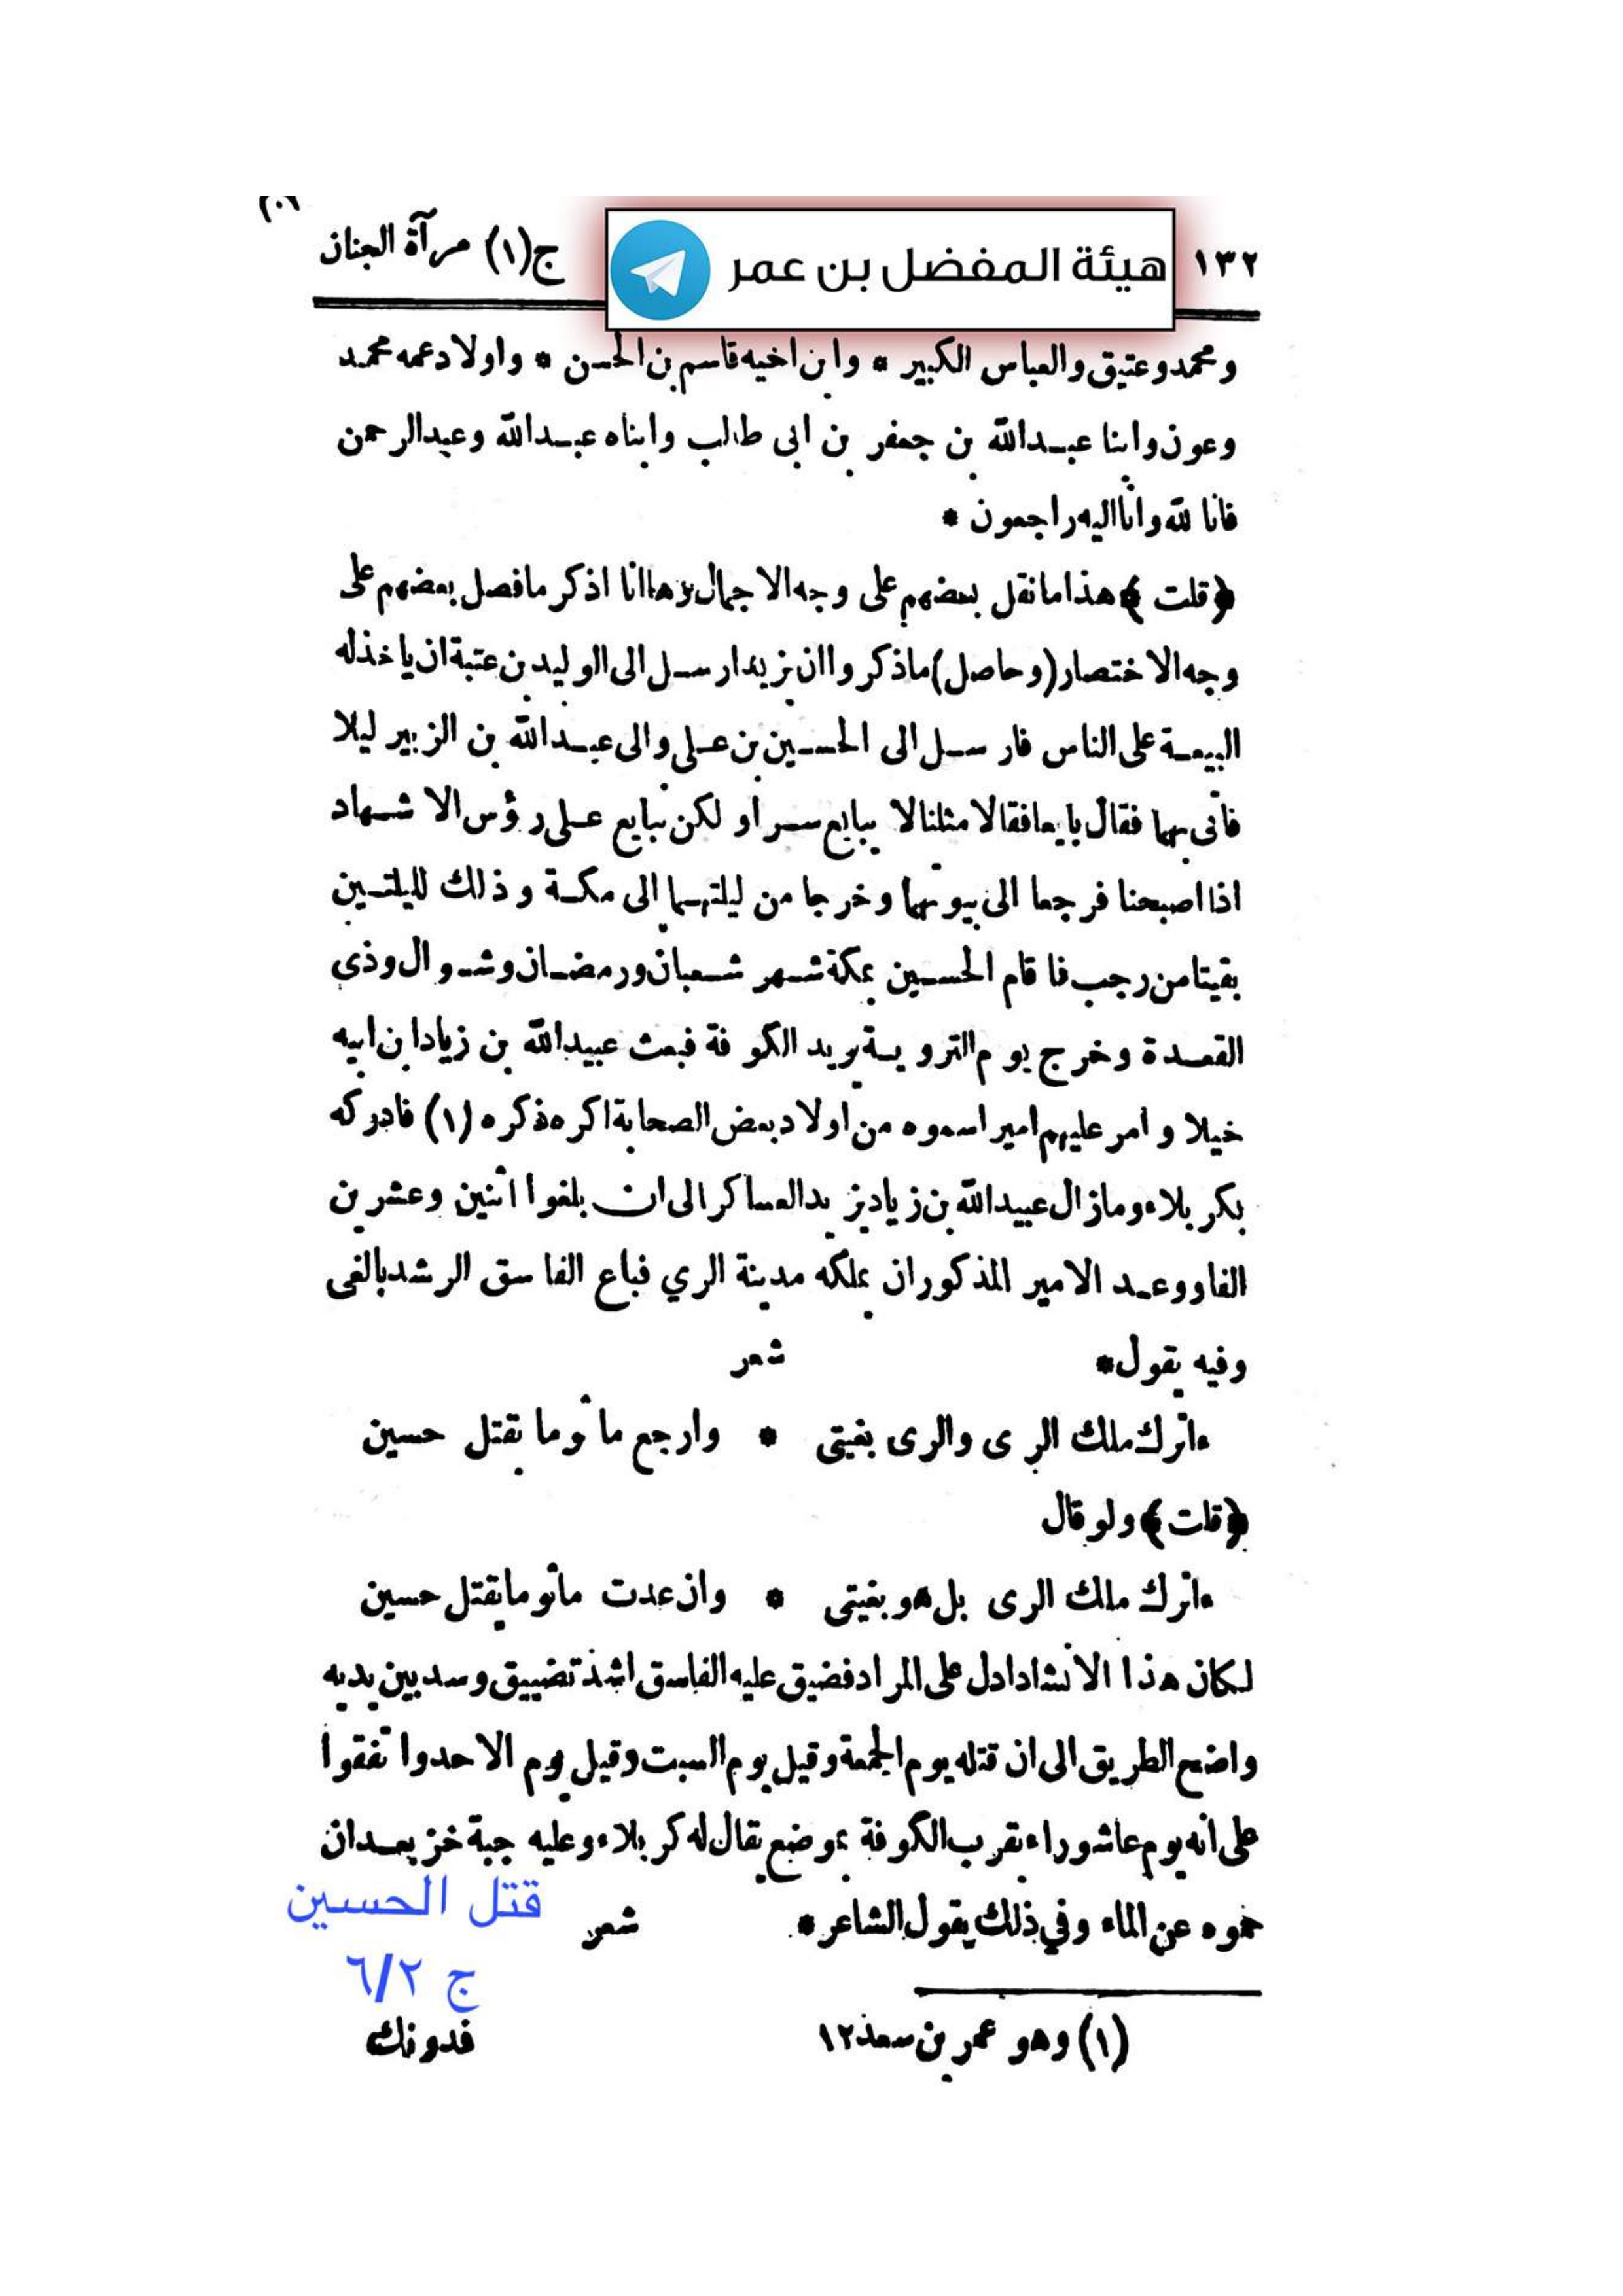 ١٣٢
هيئة المفضل بن عمر
ج(١) مرآة الجنان
ومحمد وعتيق والعباس الكبير * وابن اخيه قاسم بن الحسن * واولاد عمه محمد
وعون وابنا عبدالله بن جعفر بن ابى طالب وابناه عبدالله وعبدالرحمن
فانا لله وانا اليه راجعون *
﴿قلت﴾ هذا ما نقل بعضهم على وجه الاجمال وها انا اذكر ما فصل بعضهم على
وجه الاختصار (وحاصل) ما ذكروا ان يزيد ارسل الى الوليد بن عتبة ان ياخذ له
البيعة على الناس فارسل الى الحسين بن على والى عبدالله بن الزبير ليلا
فاتى بهما فقال بايعا فقالا مثلنا لا يبايع سرا ولكن نبايع على رؤس الاشهاد
اذا اصبحنا فرجعا الى بيوتهما وخرجا من ليلتهما الى مكة وذلك لليلتين
بقيتا من رجب فاقام الحسين بمكة شهر شعبان ورمضان وشوال وذى
القعدة وخرج يوم التروية يريد الكوفة فبعث عبيدالله بن زياد ابن ابيه
خيلا وامر عليهم اميرا سموه من اولاد بعض الصحابة اكره ذكره (١) فادركه
بكربلاء وما زال عبيدالله بن زياد يزيد العساكر الى ان بلغوا اثنين وعشرين
الفا ووعد الامير المذكور ان يملكه مدينة الري فباع الفاسق الرشد بالغى
وفيه يقول * شعر
ءاترك ملك الرى والرى بغيتى * وارجع ماثوما بقتل حسين
﴿قلت﴾ ولو قال
ءاترك ملك الرى بل هو بغيتى * وان عدت ماثوما بقتل حسين
لكان هذا الانشاد ادل على المراد فضيق عليه الفاسق اشد تضييق وسد بين يديه
واضح الطريق الى ان قتله يوم الجمعة وقيل يوم السبت وقيل يوم الاحد واتفقوا
على انه يوم عاشوراء بقرب الكوفة بموضع يقال له كربلاء وعليه جبة خز بعد ان
حموه عن الماء وفي ذلك يقول الشاعر * شعر
قتل الحسين
ج ٦/٢
(١) وهو عمر بن سعد ١٢
فدونك